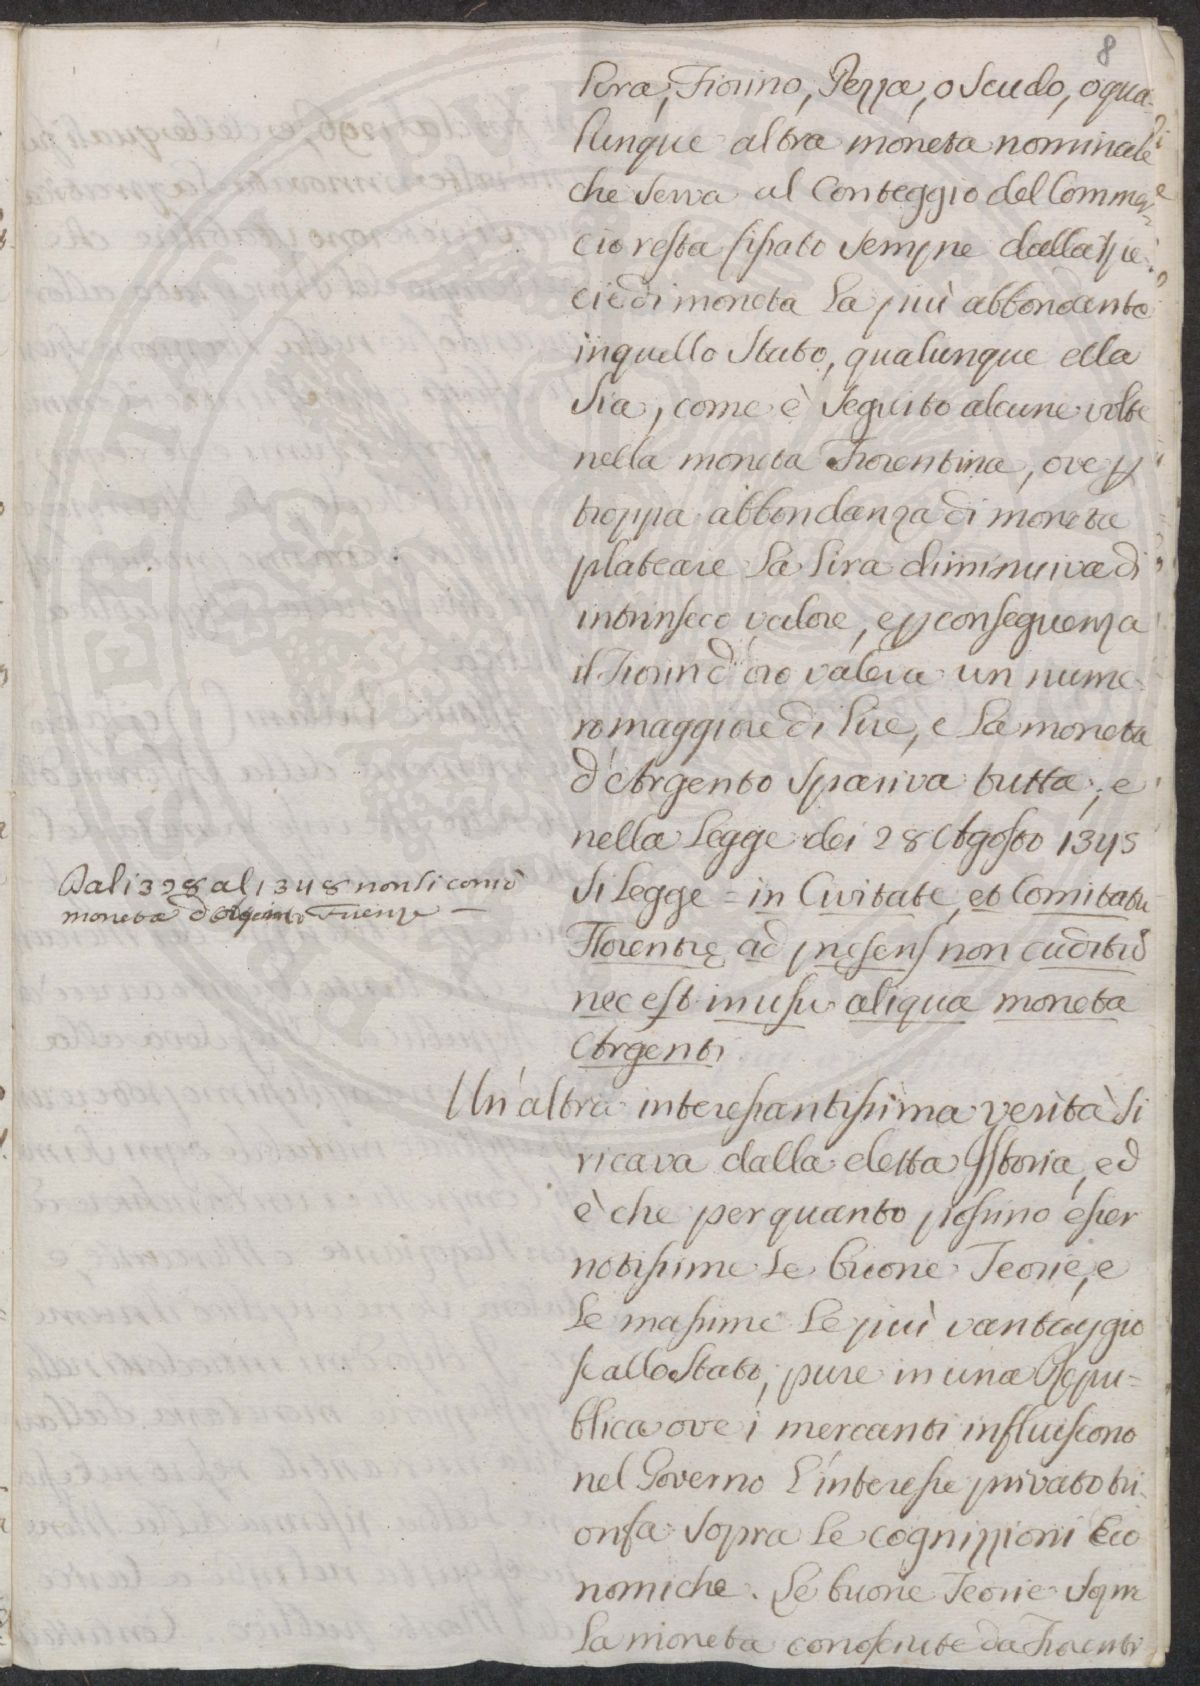 8
lira, Fiorino, Pezza, o Scudo, o qua-
lunque altra moneta nominale
che serva al Conteggio del Commer-
cio resta fissato sempre dalla spe-
cie di moneta la più abbondante
in quello Stato, qualunque ella
sia, come è seguito alcune volte
nella moneta Fiorentina, ove p
troppa abbondanza di moneta
plateale la lira diminuiva di
intrinseco valore, e p conseguenza
il Fiorin d'oro valeva un nume-
ro maggiore di lire, e la moneta
d'Argento spariva tutta; e
nella Legge dei 28 Agosto 1345
Dal 1328 al 1348 non si coniò
moneta d'Argento Firenze —
si legge = in Civitate, et Comitatu
Florentię ad pręsens non cuditur
nec est in usu aliqua moneta
Argenti
Un'altra interessantissima verità si
ricava dalla detta Istoria, ed
è che per quanto possino esser
notissime le buone Teorie, e
le massime le più vantaggio
se allo Stato, pure in una Repu=
blica ove i mercanti influiscono
nel Governo l'interesse privato tri-
onfa sopra le cognizzioni Eco
nomiche. Le buone Teorie sopra
la moneta conosciute da Fiorenti